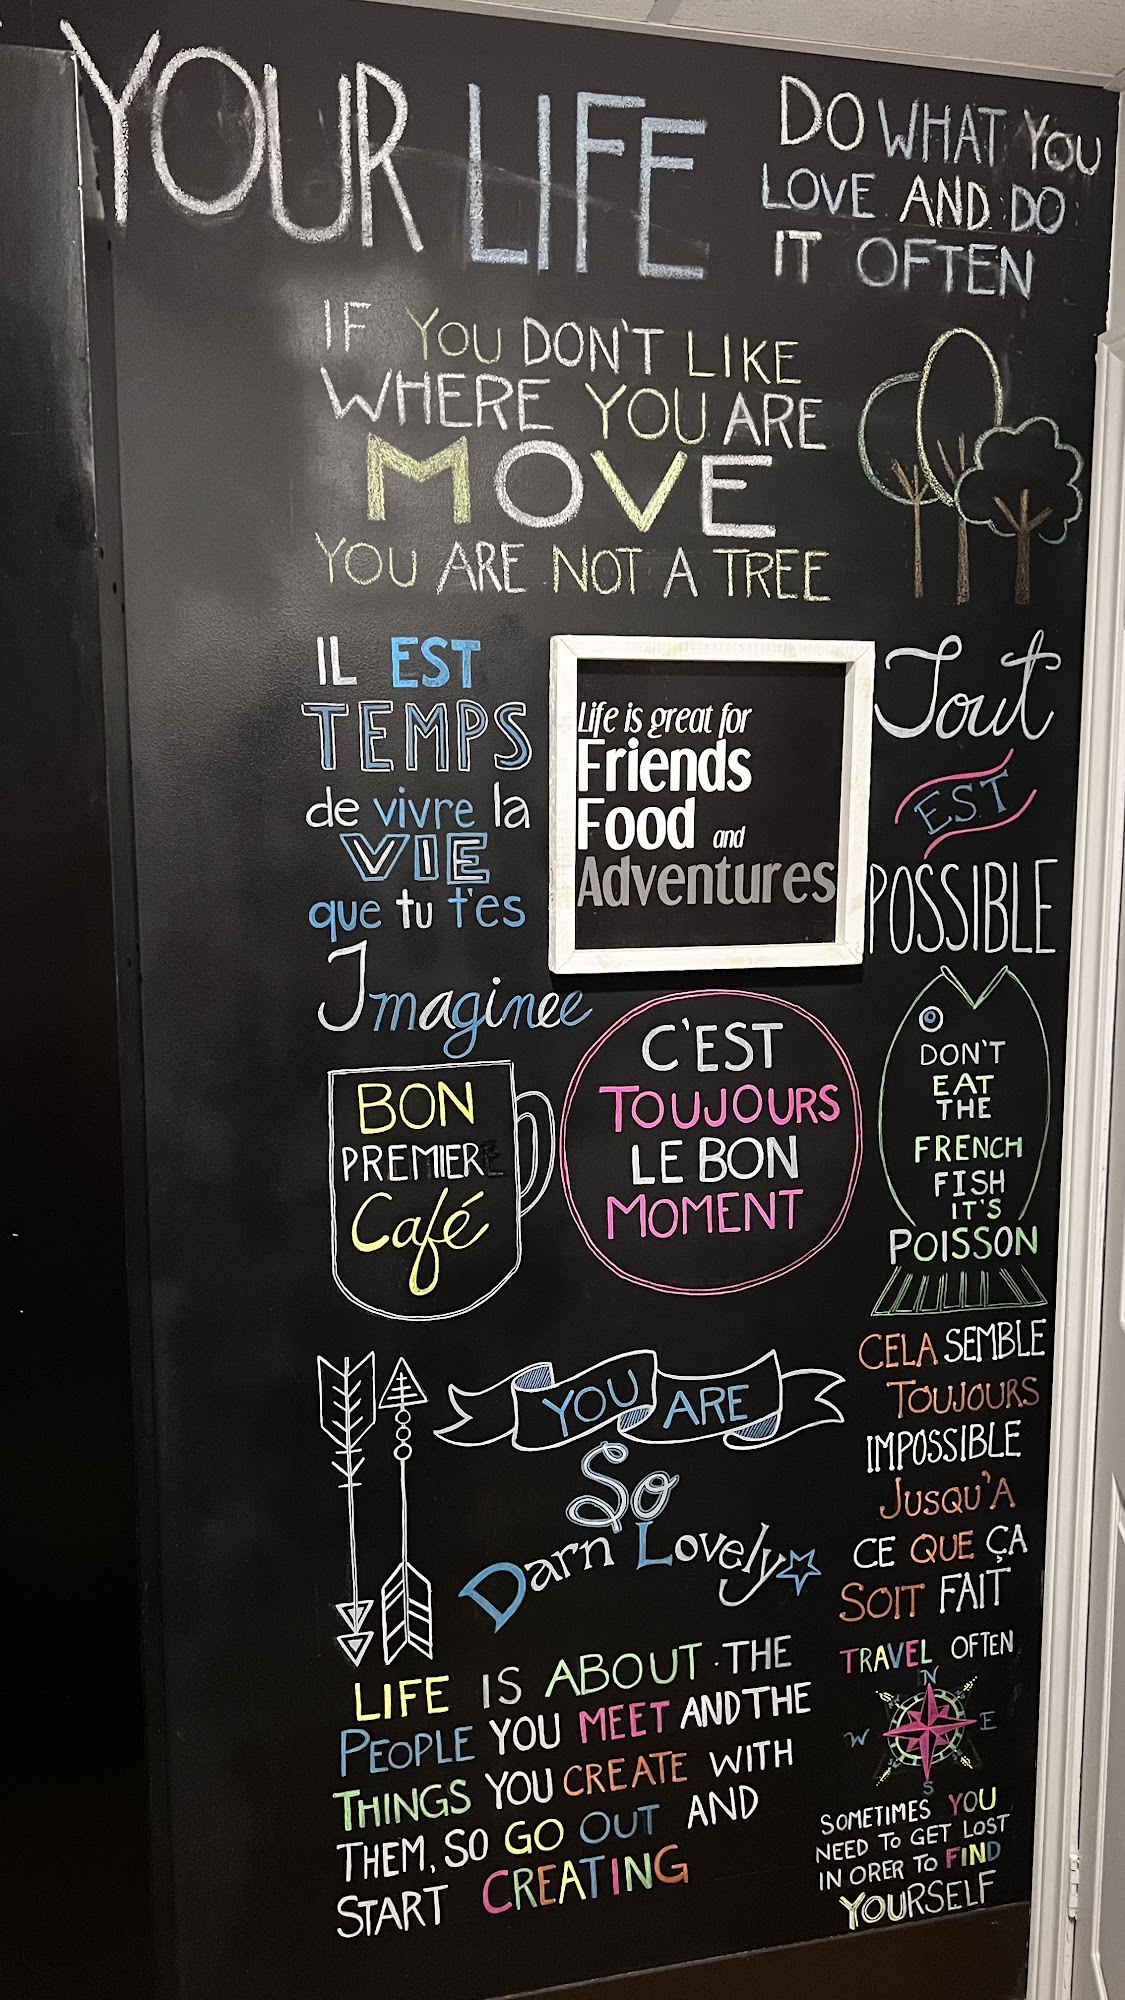 YOUR LIFE
DO WHAT YOU
LOVE AND DO
IT OFTEN
IF YOU DON'T LIKE
WHERE YOU ARE
MOVE
YOU ARE NOT A TREE
IL EST
TEMPS
de vivre la
VIE
que tu t'es
Imaginee
Life is great for
Friends
Food and
Adventures
Tout
EST
POSSIBLE
BON
PREMIERE
Café
C'EST
TOUJOURS
LE BON
MOMENT
DON'T
EAT
THE
FRENCH
FISH
IT'S
POISSON
YOU ARE
So
Darn Lovely
CELA SEMBLE
TOUJOURS
IMPOSSIBLE
JUSQU'A
CE QUE ÇA
SOIT FAIT
LIFE IS ABOUT THE
PEOPLE YOU MEET AND THE
THINGS YOU CREATE WITH
THEM, SO GO OUT AND
START CREATING
TRAVEL OFTEN
N
W E
S
SOMETIMES YOU
NEED TO GET LOST
IN ORER TO FIND
YOURSELF